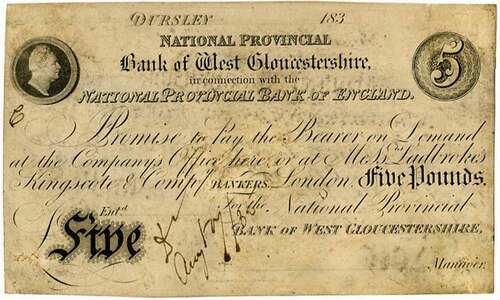 DURSLEY 183
NATIONAL PROVINCIAL
Bank of West Gloucestershire,
in connection with the
NATIONAL PROVINCIAL BANK OF ENGLAND.
5
I Promise to Pay the Bearer on Demand
at the Company's Office here, or at Messrs Ladbrokes
Kingscote & Compy BANKERS, London, Five Pounds.
for the National Provincial
Entd
Five
BANK OF WEST GLOUCESTERSHIRE,
Manager.